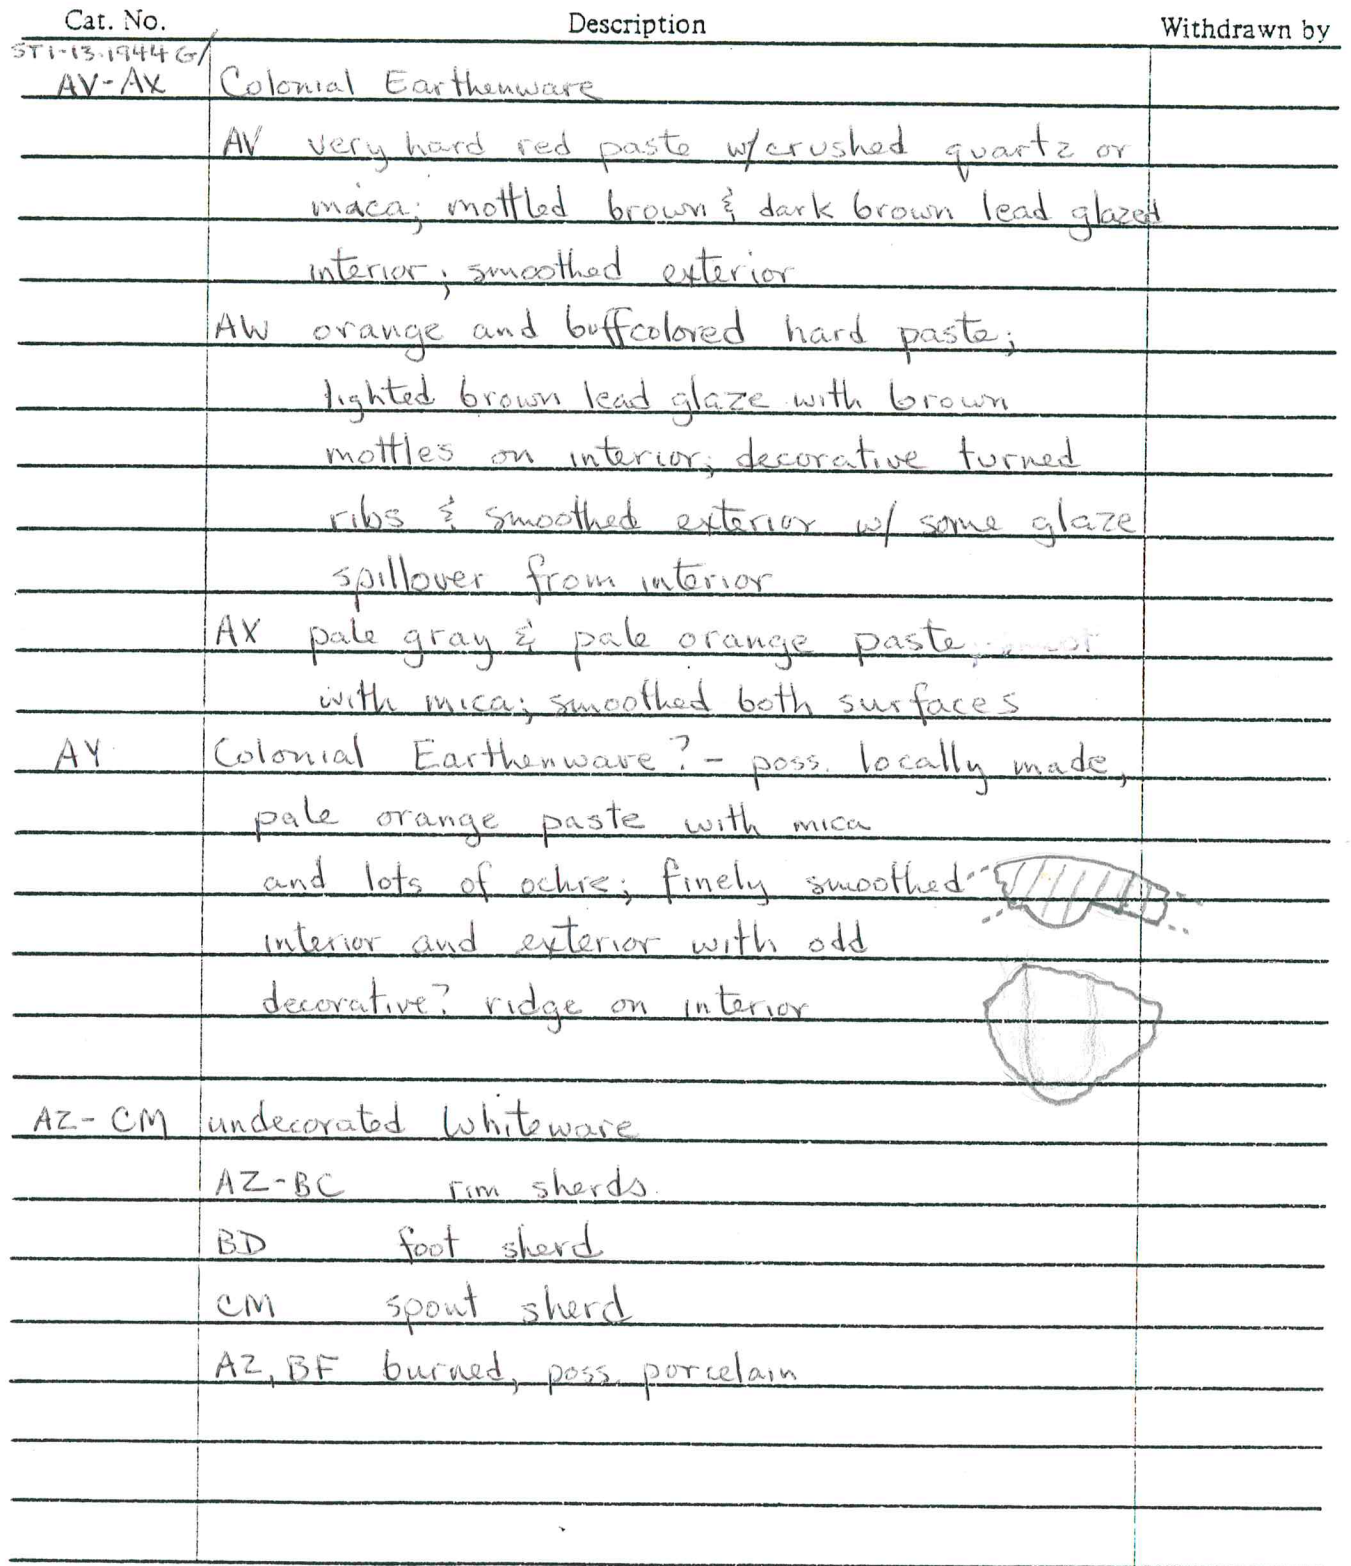 Cat. No. Description Withdrawn by
ST1-13.1944 G/
AV-AX Colonial Earthenware
AV very hard red paste w/crushed quartz or
maca; mottled brown & dark brown lead glazed
interior; smoothed exterior
AW orange and buffcolored hard paste;
lighted brown lead glaze with brown
mottles on interior; decorative turned
ribs & smoothed exterior w/ some glaze
spillover from interior
AX pale gray & pale orange paste
with mica; smoothed both surfaces
AY Colonial Earthenware? - poss. locally made,
pale orange paste with mica
and lots of ochre; finely smoothed
interior and exterior with odd
decorative? ridge on interior
AZ-CM undecorated Whiteware
AZ-BC rim sherds.
BD foot sherd
CM spout sherd
AZ, BF burned, poss. porcelain